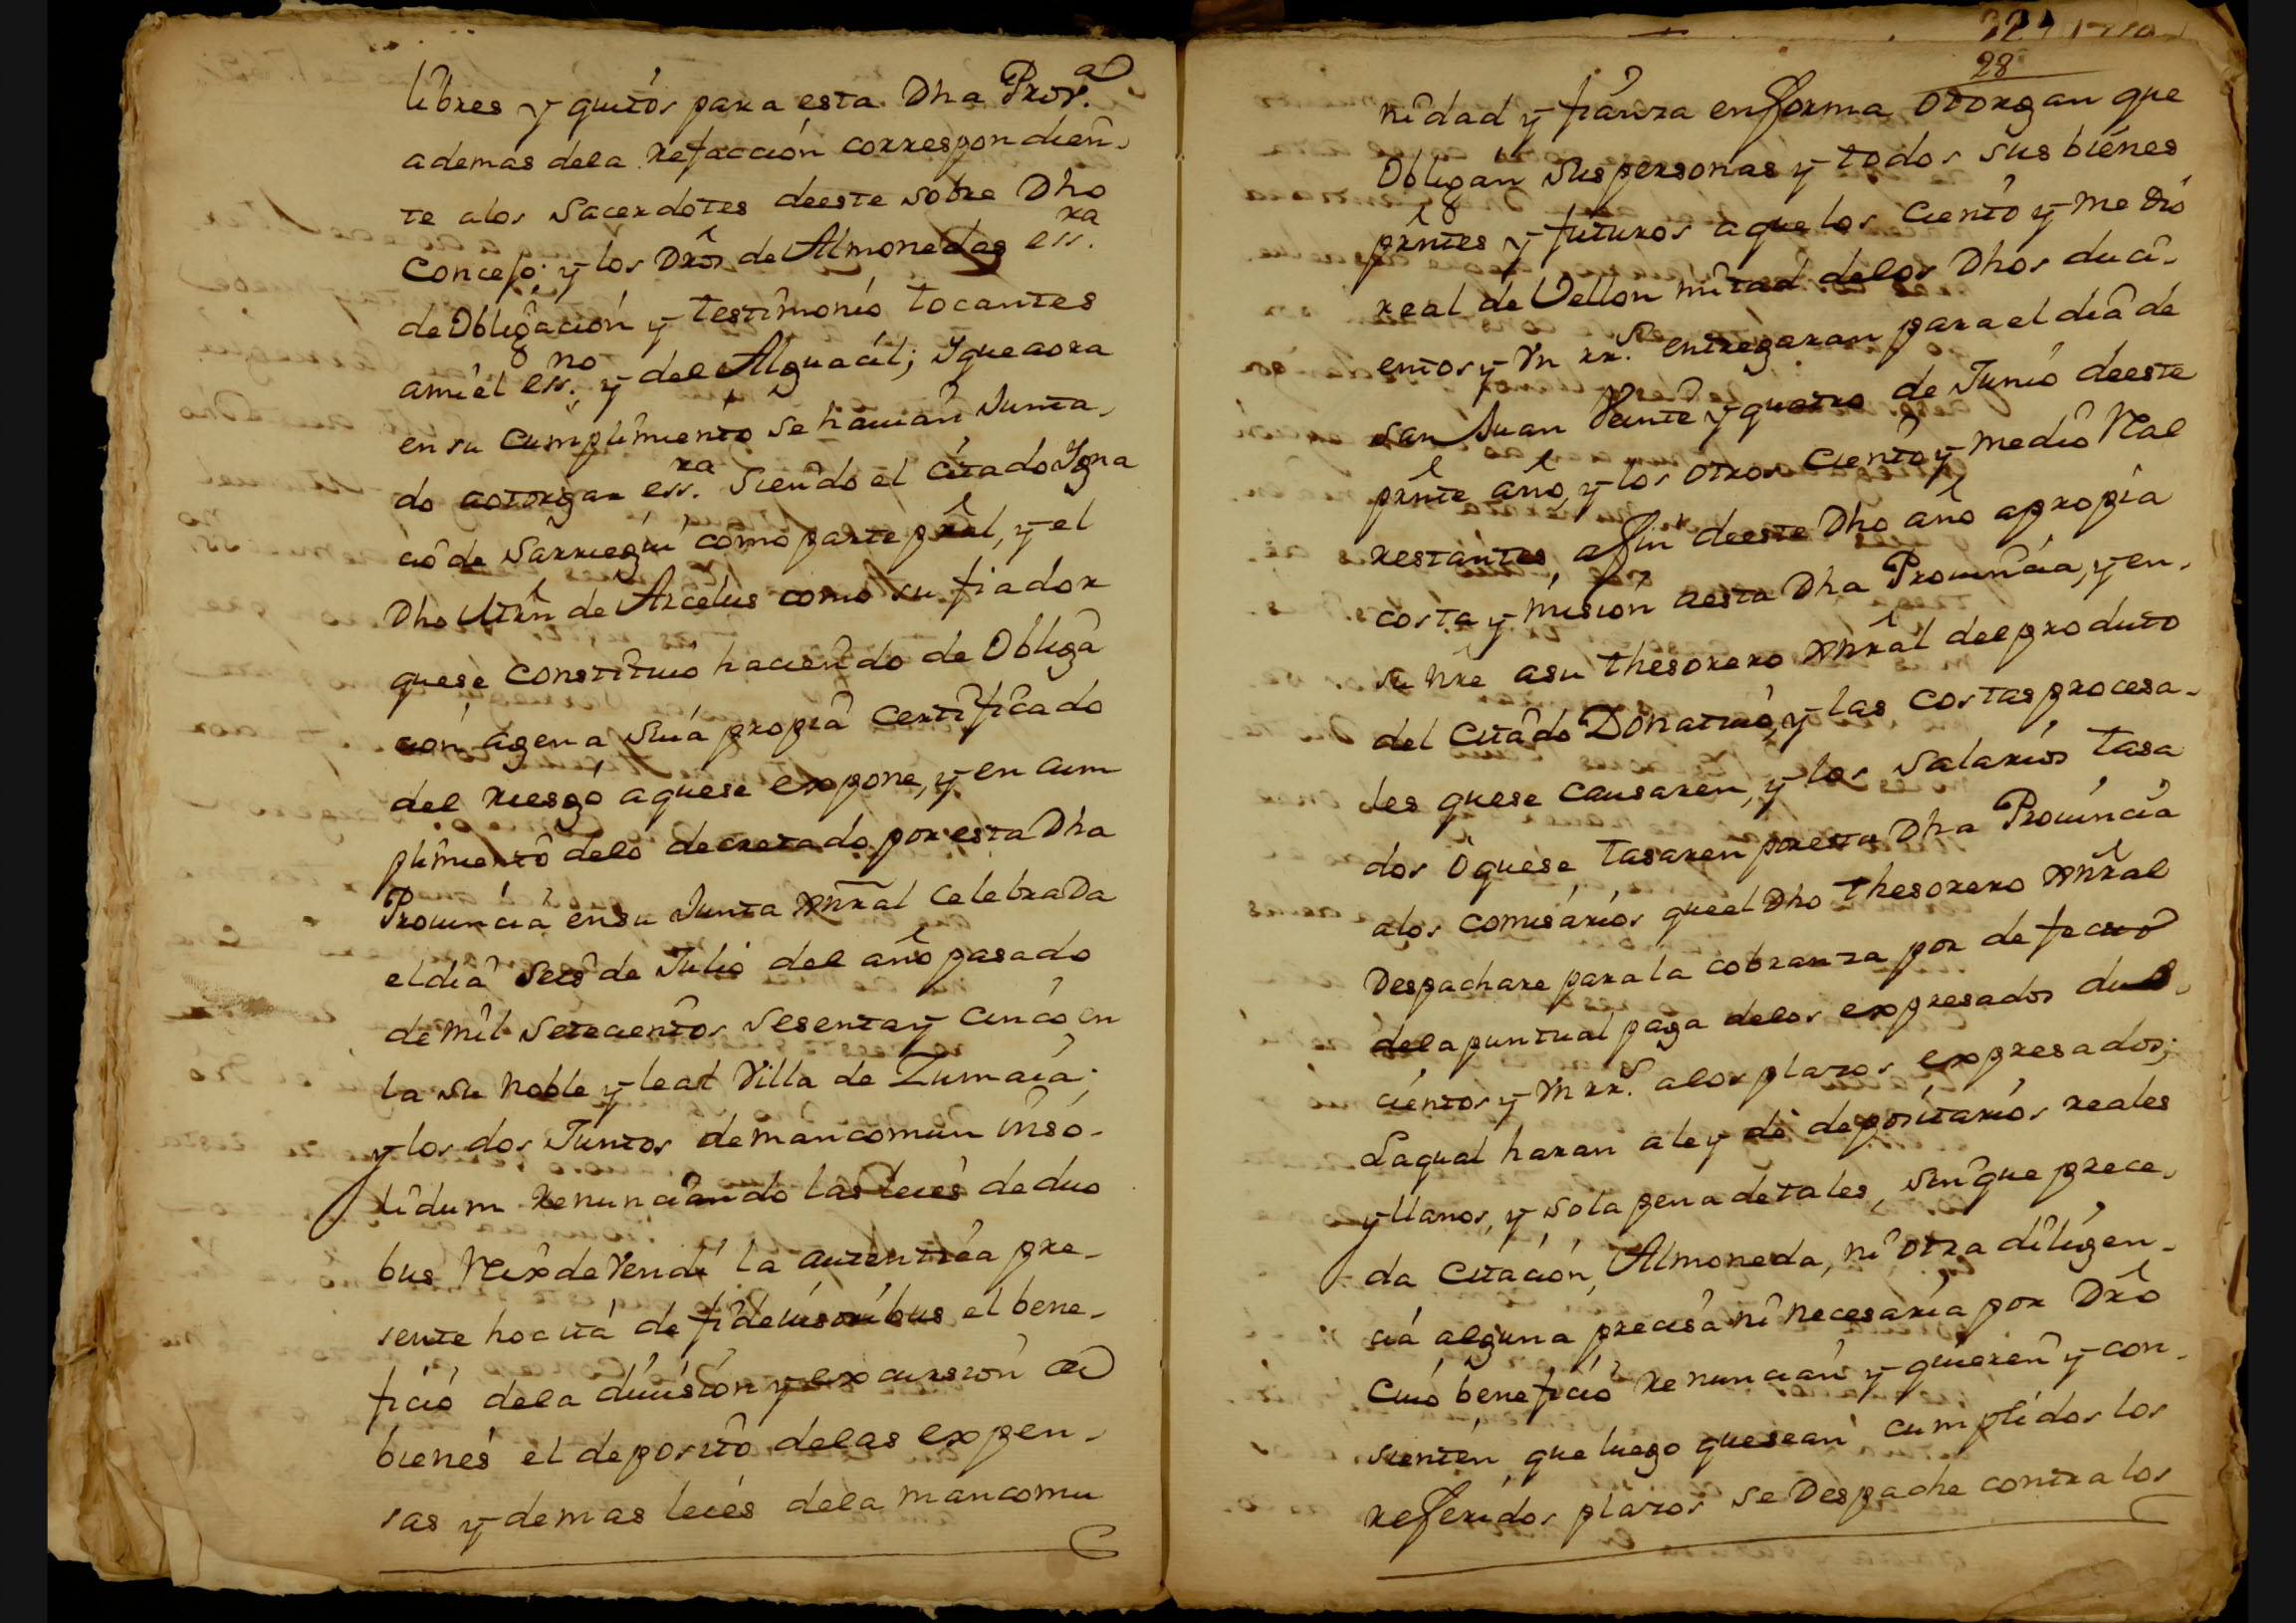 libres y quitos para esta Dha Prov.a
ademas dela refacción correspondien-
te alos Sacerdotes deeste sobre Dho
Concejo; y los Drôs de Almonedas ess.ra
de Obligación y testimonio tocantes
amiel ess.no y del Alguacil; Yque aora
en su Cumplimiento se havian Junta-
do aotorgar ess.ra Siendo el citado Ygna
cio de Sarriegui como parte prâl, y el
Dho Mrñ de Arcelus como su fiador
quese constituió haciendo de Obliga
ción agena Suia propia certificado
del riesgo aquese expone, y en cum
plimiento delo decretado por esta Dha
Provincia en su Junta xnral Celebrada
eldia seis de Julio del año pasado
de mil setecientos sesenta y cinco en
la su Noble y leal Villa de Zumaia;
y los dos Juntos demancomun inso-
lidum renunciando las leies deduo
bus Reix de Vendi la autentica pre-
sente hocita de fideiusoribus el bene-
ficio dela division y excursion de
bienes el deposito delas expen-
sas y demas leies dela mancomu
28
nidad y fianza enforma otorgan que
Obligan Sus personas y todos sus bienes
prntes y futuros aque los Ciento y medio
real de Vellon mitad delos Dhos duci-
entos y Vn rr.s entregaran para el dia de
san Juan Veinte y quatro de Junio deeste
prnte año, y los otros Ciento y medio Real
restantes, afin deeste Dho año apropia
costa y mision aesta Dha Provincia, y en-
su nre asu thesorero xnral del produto
del Citado Donativo, y las costas procesa-
les quese causaren, y los Salarios tasa
dos o quese tasaren poresta Dha Provincia
alos comisarios queel Dho thesorero xnral
Despachare parala cobranza por defecto
dela puntual paga delos expresados du-
cientos y Vn rr.s alos plazos expresados;
Laqual haran aley de depositarios reales
y llanos, y sola pena detales, sinque prece-
da Citación, Almoneda, ni otra diligen-
cia alguna precisa ni necesaria por Drô
Cuio beneficio renuncian y quieren y con-
sienten que luego quesean cumplidos los
referidos plazos se Despache contra los